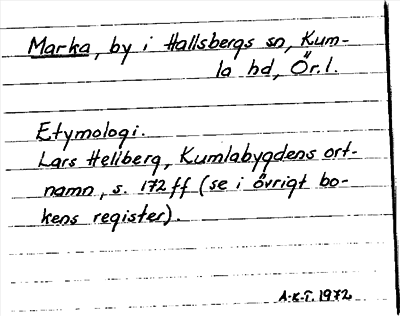 Marka, by i Hallsbergs sn, Kum-
la hd, Ör.l.
Etymologi.
Lars Hellberg, Kumlabygdens ort-
namn, s. 172 ff (se i övrigt bo-
kens register).
A-K.T. 1972